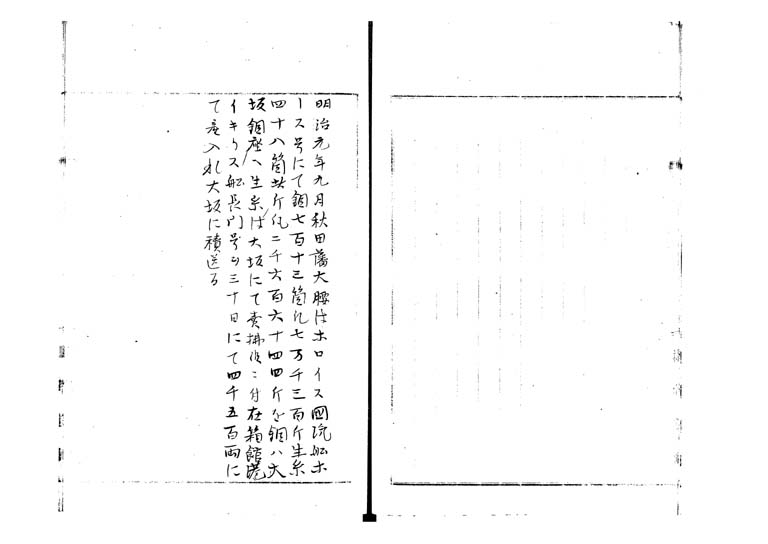 明治元年九月秋田藩大腰はホロイス國玩船ホ
ース号にて銅七百十三箇凡七万千三百斤生糸
四十八箇此斤凡二千六百六十四四斤を銅ハ大
坂銅座へ生糸は大坂にて売拂候ニ付在箱館港
イキリス船長門号を三十日にて四千五百両に
て雇入れ大坂に積送る